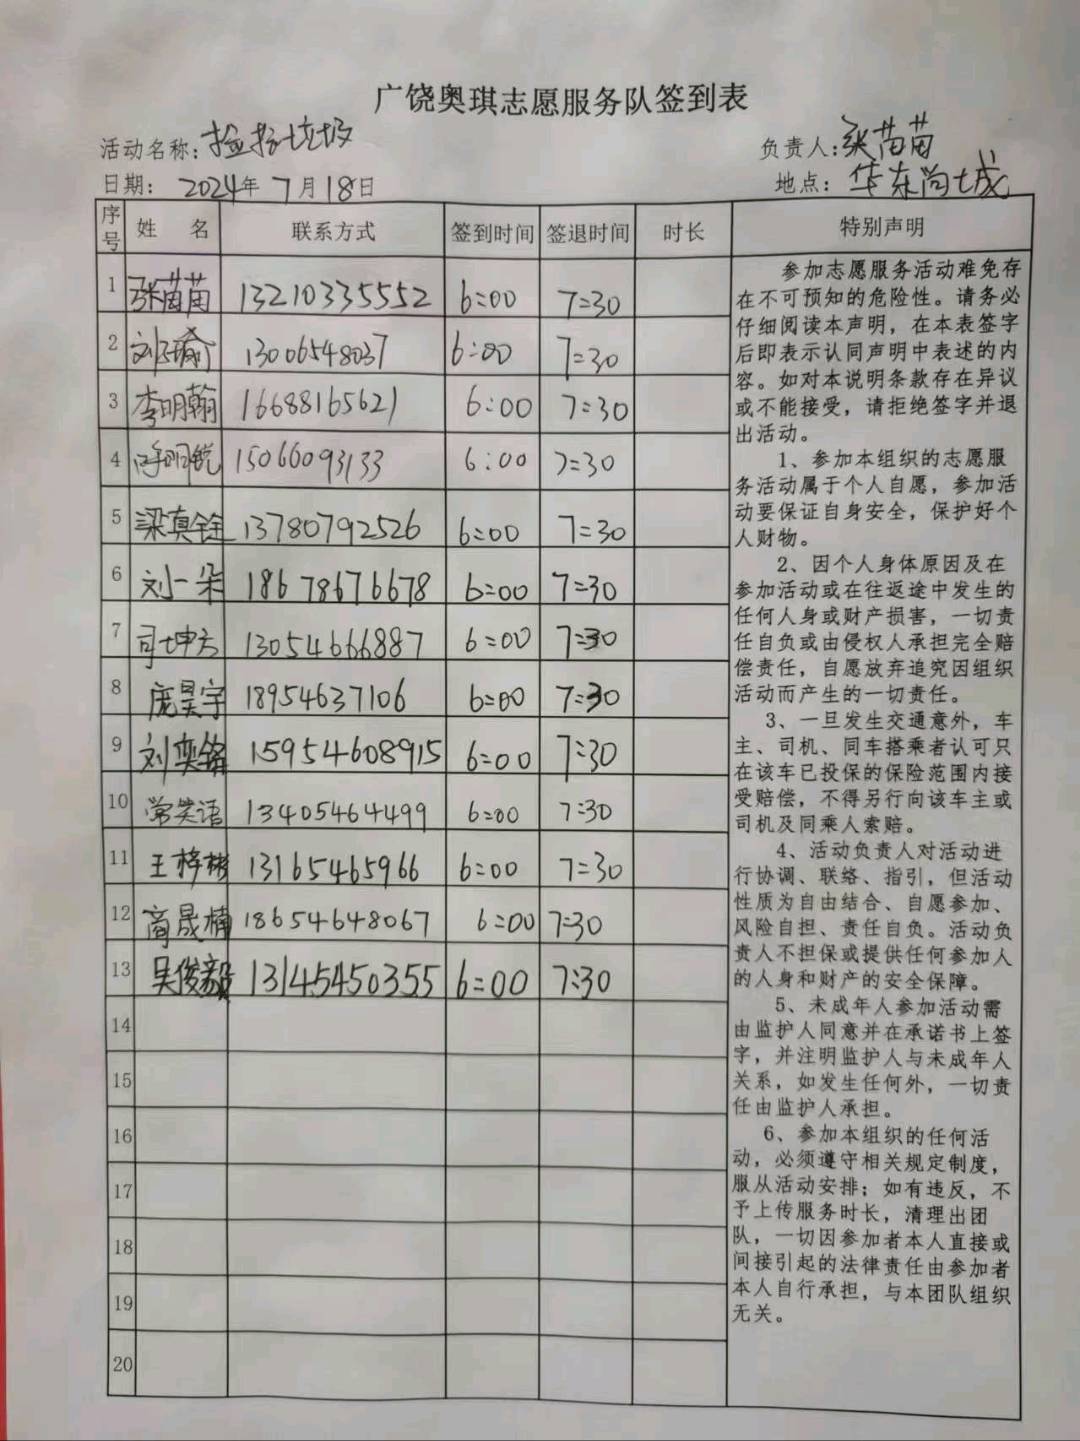 广饶奥琪志愿服务队签到表
活动名称：捡拾垃圾 负责人：张苗苗
日期： 2024年7月18日 地点： 华东尚城
序号 姓 名 联系方式 签到时间 签退时间 时长 特别声明
1 张苗苗 13210335552 6:00 7:30
2 刘瑜 13006548037 6:00 7:30
3 李明翰 16688165621 6:00 7:30
4 明锐 15066093133 6:00 7:30
5 梁真铨 13780792526 6:00 7:30
6 刘一朵 18678676678 6:00 7:30
7 司坤方 13054666887 6:00 7:30
8 庞昊宇 18954637106 6:00 7:30
9 刘奕铭 15954608915 6:00 7:30
10 常笑语 13405464499 6:00 7:30
11 王梓彬 13165465966 6:00 7:30
12 商晟楠 18654648067 6:00 7:30
13 吴俊毅 13145450355 6:00 7:30
14
15
16
17
18
19
20
参加志愿服务活动难免存
在不可预知的危险性。请务必
仔细阅读本声明，在本表签字
后即表示认同声明中表述的内
容。如对本说明条款存在异议
或不能接受，请拒绝签字并退
出活动。
1、参加本组织的志愿服
务活动属于个人自愿，参加活
动要保证自身安全，保护好个
人财物。
2、因个人身体原因及在
参加活动或在往返途中发生的
任何人身或财产损害，一切责
任自负或由侵权人承担完全赔
偿责任，自愿放弃追究因组织
活动而产生的一切责任。
3、一旦发生交通意外，车
主、司机、同车搭乘者认可只
在该车已投保的保险范围内接
受赔偿，不得另行向该车主或
司机及同乘人索赔。
4、活动负责人对活动进
行协调、联络、指引，但活动
性质为自由结合、自愿参加、
风险自担、责任自负。活动负
责人不担保或提供任何参加人
的人身和财产的安全保障。
5、未成年人参加活动需
由监护人同意并在承诺书上签
字，并注明监护人与未成年人
关系，如发生任何外，一切责
任由监护人承担。
6、参加本组织的任何活
动，必须遵守相关规定制度，
服从活动安排；如有违反，不
予上传服务时长，清理出团
队，一切因参加者本人直接或
间接引起的法律责任由参加者
本人自行承担，与本团队组织
无关。